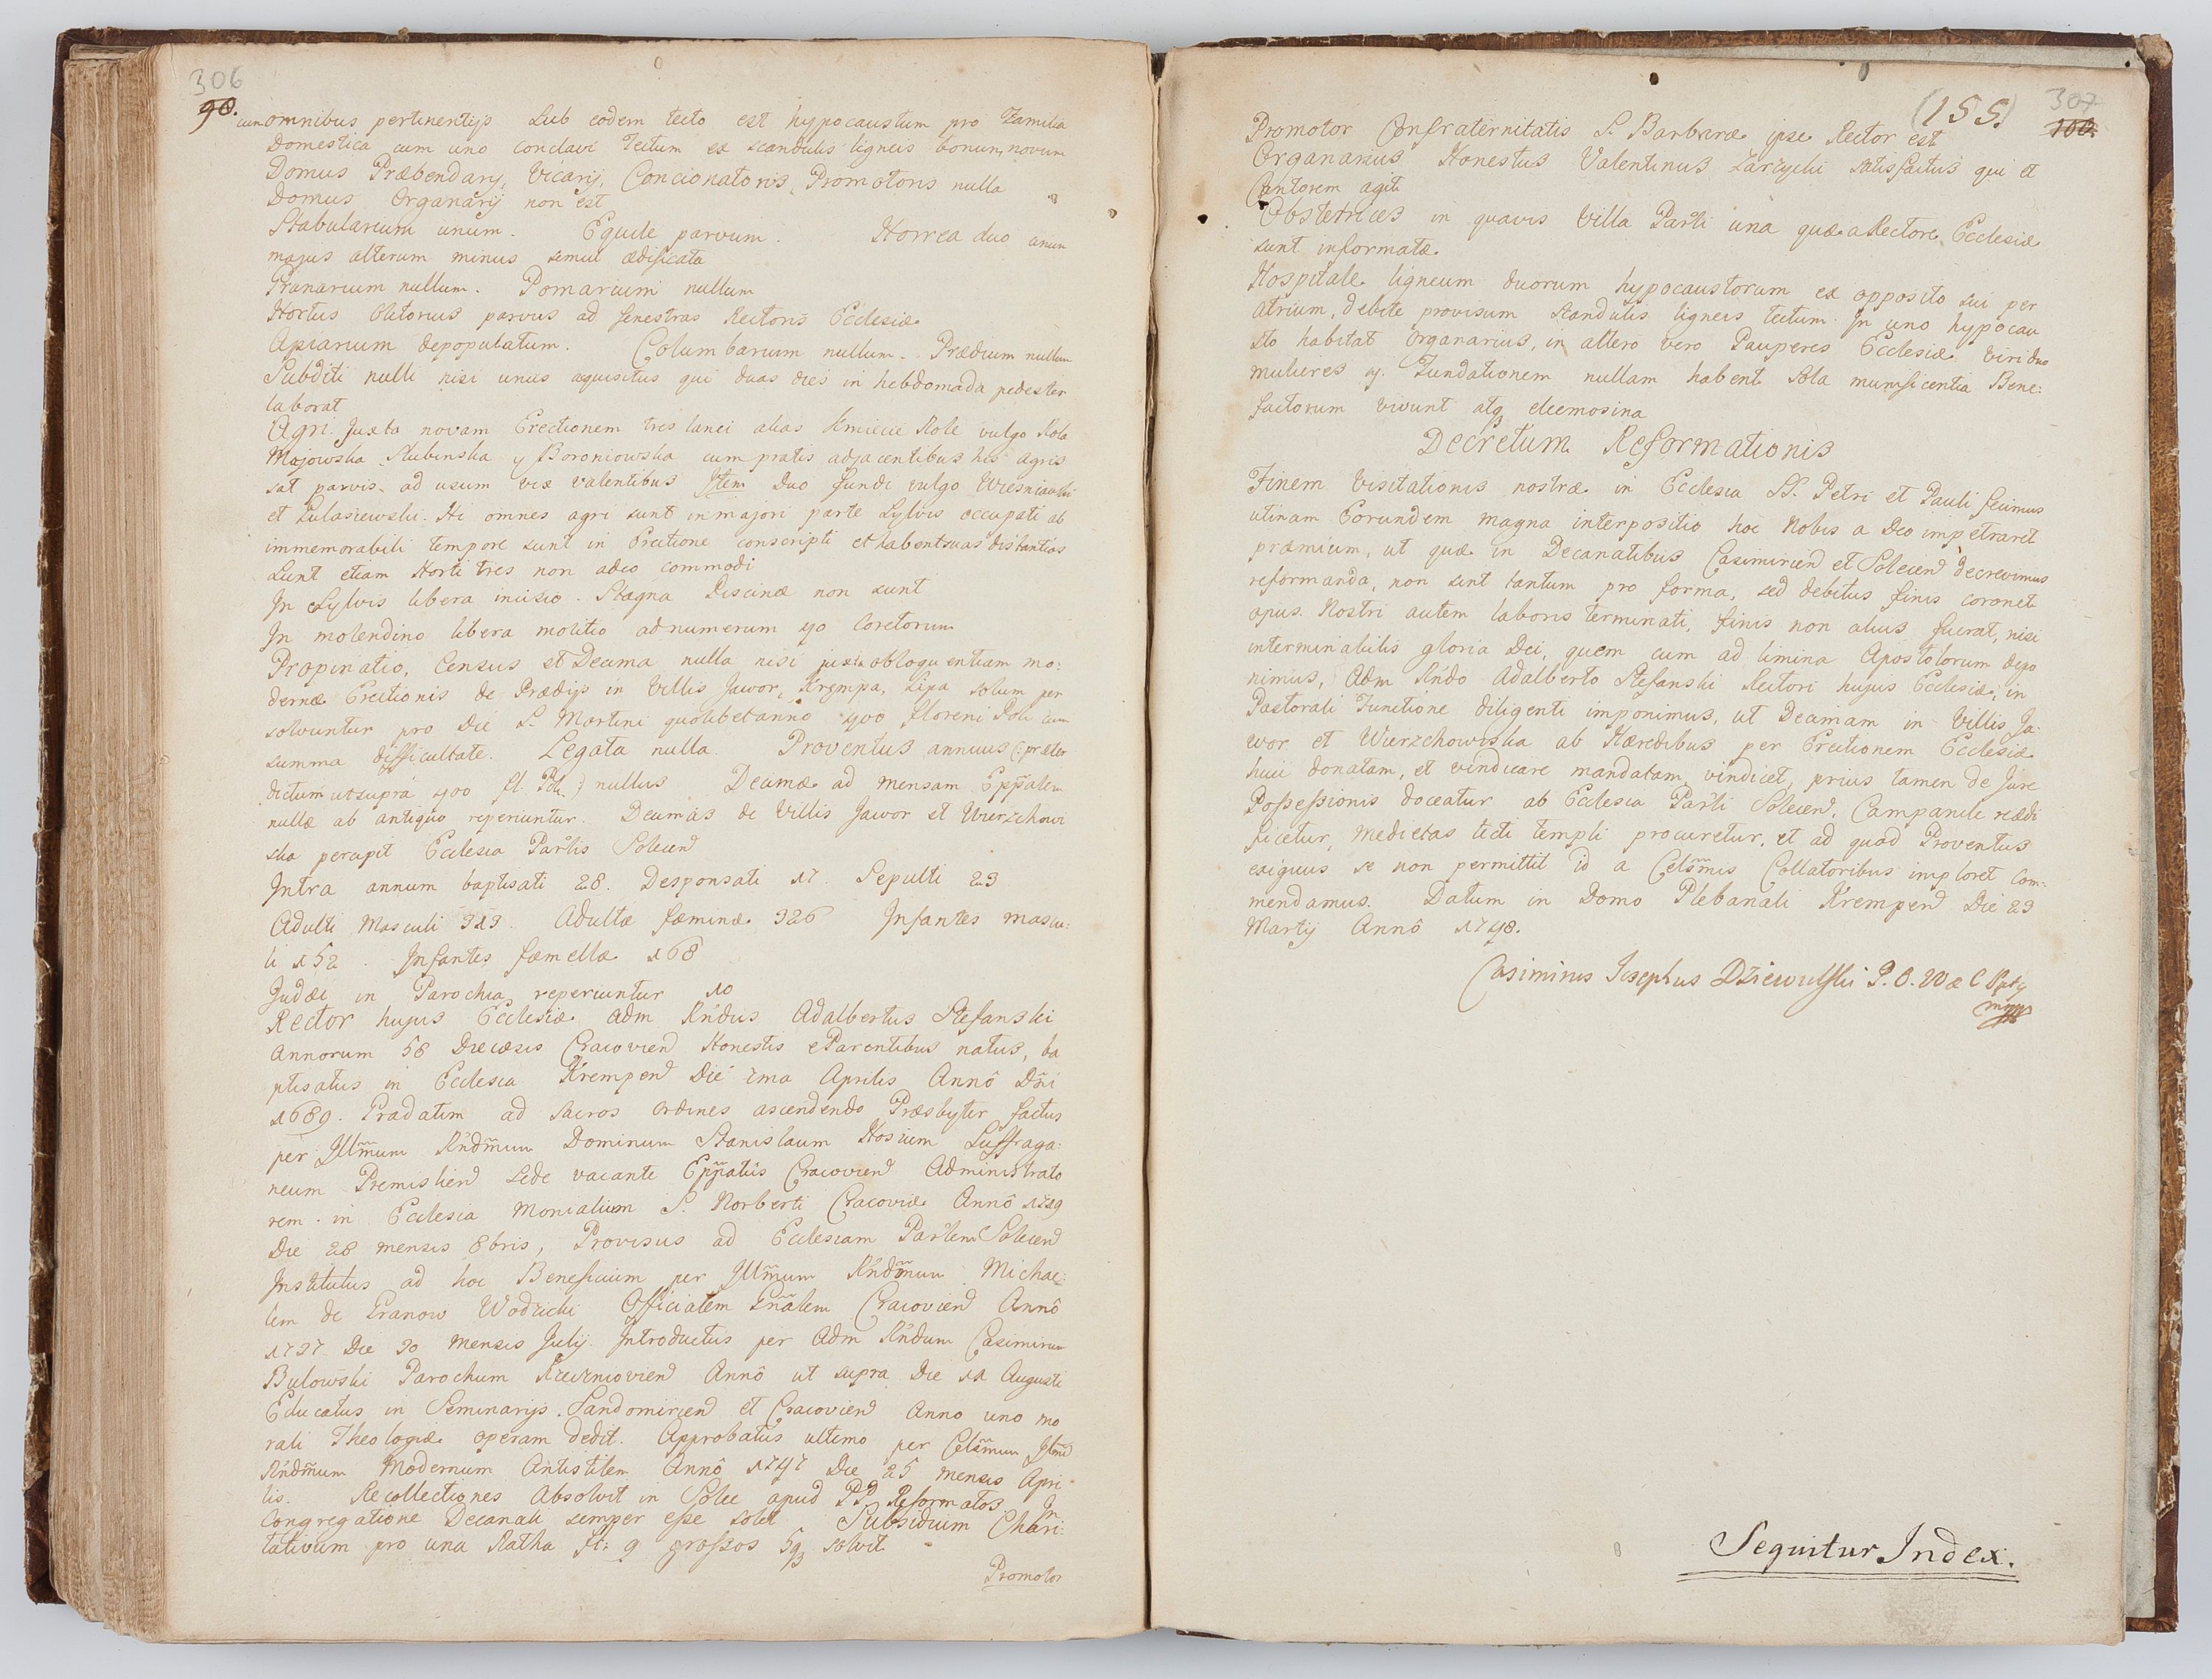 306
98.
cum omnibus pertinentijs Sub eodem tecto est hypocaustum pro Familia
Domestica cum uno conclavi Tectum ex scandulis ligneis bonum, novum
Domus Præbendarij, Vicarij, Concionatoris, Promotoris nulla
Domus Organarij non est
Stabularium unum. Equile parvum. Horrea duo unum
majus alterum minus simul ædificata
Granarium nullum. Pomarium nullum
Hortus Olitorius parvus ad fenestras Rectoris Ecclesiæ
Apiarium depopulatum. Columbarium nullum. Prædium nullum
Subditi nulli nisi unus aquisitus qui duas dies in hebdomada pedester
laborat
Agri Juxta novam Erectionem tres lanei alias Kmiecie Role vulgo Rola
Majowska Kubinska y Boroniowska cum pratis adjacentibus his agris
sat parvis ad usum vix valentibus Item Duo fundi vulgo Wiesniawski
et Lulasiewski. Hi omnes agri sunt in majori parte Sylvis occupati ab
immemorabili tempore sunt in Erectione conscripti et habent suas distantias
Sunt etiam Horti tres non adeo commodi
In Sylvis libera incisio. Stagna Piscinæ non sunt
In molendino libera molitio ad numerum 40 Coretorum
Propinatio, Census et Decima nulla nisi juxta obloquentiam mo:
dernæ Erectionis de Prædijs in Villis Jawor, Krempa, Lipa solum per
solvuntur pro Die S. Martini quolibet anno 400 floreni Pol: cum
summa difficultate. Legata nulla. Proventus annuus (: præter
dictum ut supra 400 fl. Pol. :) nullus Decimæ ad mensam Eppalem
nullæ ab antiquo reperiuntur. Decimas de Villis Jawor et Wierzchowi
ska percipit Ecclesia Parlis Solecen
Intra annum baptisati 28. Desponsati 17 Sepulti 23
Adulti Masculi 313. Adultæ fæminæ 326 Infantes mascu:
li 152. Infantes fæmellæ 168
Judæi in Parochia reperiuntur 10
Rector hujus Ecclesiæ Adm Rndus Adalbertus Stefanski
Annorum 58 Diecæsis Cracovien Honestis e Parentibus natus, ba
ptisatus in Ecclesia Krempen Die 1ma Aprilis Annô Dni
1689. Gradatim ad sacros ordines ascendendo Præsbyter factus
per Illmum Rndmum Dominum Stanislaum Hosium Suffraga:
neum Premislien sede vacante Eppatûs Cracovien Administrato
rem in Ecclesia Monialium S. Norberti Cracoviæ Annô 1719
Die 28 mensis 8bris, Provisus ad Ecclesiam Parlem Solecen
Institutus ad hoc Beneficium per Illmum Rndmum Michae:
lem de Granow Wodzicki Officialem Gnalem Cracovien Annô
1737 Die 30 mensis Julij Introductus per Adm Rndum Casimirum
Bulowski Parochum Krzecniovien Annô ut supra Die 11 Augusti
Educatus in Seminarijs Sandomirien et Cracovien Anno uno mo
rali Theologiæ operam dedit. Approbatus ultimo per Celsmum Illmd
Rndmum Modernum Antistitem Annô 1747 Die 25 mensis Apri
lis. Recollectiones Absolvit in Solec apud PP Reformatos. In
Congregatione Decanali semper esse solet Subsidium Chari:
tativum pro una Ratha fl: 9 grossos 5 q3 solvit
Promotor
(155.)
307
100.
Promotor Confraternitatis S. Barbaræ ipse Rector est
Organarius Honestus Valentinus Zarzycki satisfactus qui et
Cantorem agit
Obstetrices in quavis Villa Parli una quæ a Rectore Ecclesiæ
sunt informatæ
Hospitale ligneum duorum hypocaustorum ex opposito sui per
atrium, debite provisum scandulis ligneis tectum. In uno hypocau
sto habitat Organarius, in altero vero Pauperes Ecclesiæ viri duo
mulieres y. Fundationem nullam habent sola munificentia Bene:
factorum vivunt atq3 eleemosina
Decretum Reformationis
Finem Visitationis nostræ in Ecclesia SS. Petri et Pauli fecimus
utinam Eorundem magna interpositio hoc Nobis a Deo impetraret
præmium, ut quæ in Decanatibus Casimirien et Solecen decrevimus
reformanda, non sint tantum pro forma, sed debitus finis coronet
opus. Nostri autem laboris terminati, finis non alius fuerat, nisi
interminabilis gloria Dei, quem cum ad limina Apostolorum depo
nimus, Adm Rndo Adalberto Stefanski Rectori hujus Ecclesiæ, in
Pastorali Functione diligenti imponimus, ut Decimam in Villis Ja:
wor et Wierzchowiska ab Hæredibus per Erectionem Ecclesiæ
huic donatam, et vindicare mandatam vindicet, prius tamen de Jure
Possessionis doceatur ab Ecclesia Parli Solecen, Campanile reædi
ficetur, medietas tecti templi procuretur, et ad quod Proventus
exiguus se non permittit id a Celsmis Collatoribus imploret com:
mendamus. Datum in Domo Plebanali Krempen Die 23
Martij Annô 1748.
Casimirus Josephus Dziewulski P. O. W æ C
mpp
Sequitur Index.